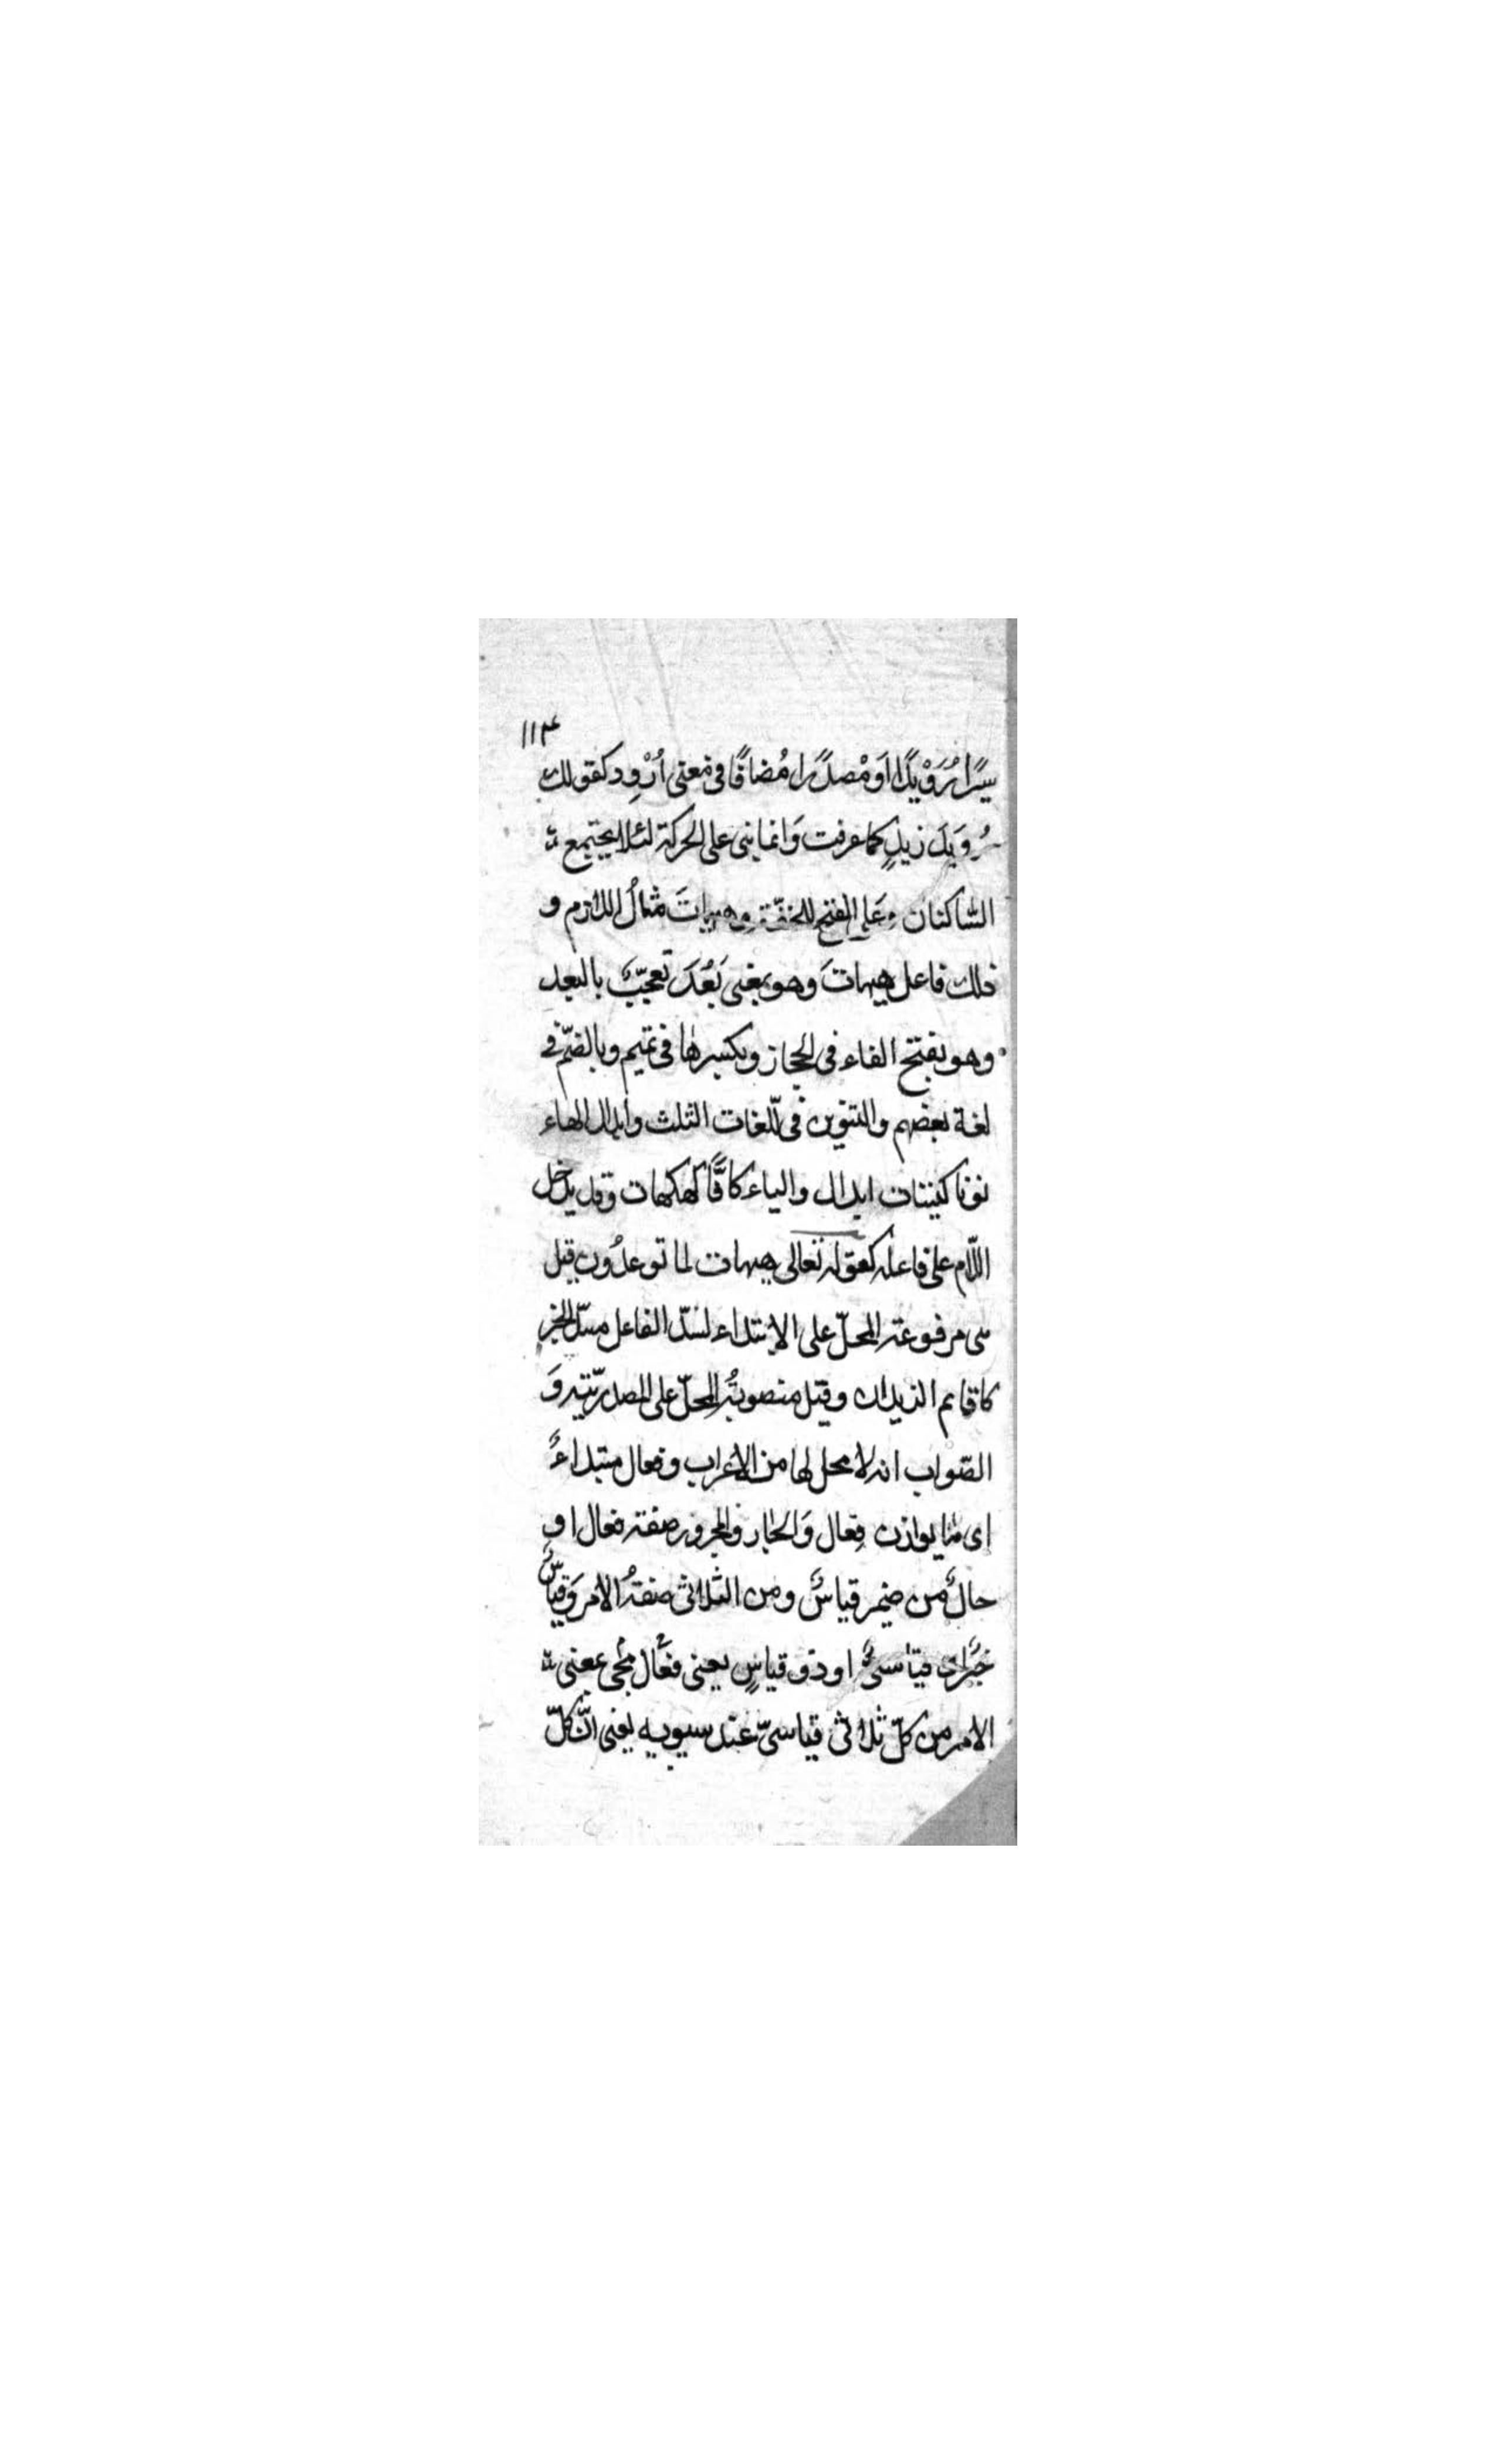 ١١٤
سيرًا رُوَيْدًا اَو مْصدَرا مُضافًا فى معنى اُرْوِد كقولك
رُوَيدَ زيدٍ كما عرفت وَانما بنى على الحركة لئلا يجتمع
الساكنان وعَلى الفتح للخفّة وهيهاتَ مثالُ اللازم و
ذلك فاعل هيهاتَ وهو بمعنى بَعُدَ تعجبّ بالبعد
وهو بفتح الفاء فى الحجاز وبكسرها فى تميم وبالضّم فى
لغة بعضهم والتنوين فى اللّغات الثلث وابدال الهاء
نونا ابدال والياء كافًا كهكهات وقد يدخل
اللّام على فاعله كقوله تعالى هيهات لما توعدُون قيل
هى مرفوعة المحلّ على الابتداء لسدّ الفاعل مسدّ الخبر
كاقايم الزيدان وقيل منصوبةُ المحلّ على المصدريّة وَ
الصّواب انه لا محل لها من الاعراب وفعال مبتداءٌ
اى ما يوازن فِعال وَالجار والمجرور صفة فعال او
حالٌ من ضمير قياسٌ ومن الثلاثى صفةُ الامر وَقياسٌ
خبرٌ اى قياسىٌّ او ذو قياسٍ يعنى فعَال يجىء بمعنى
الامر من كلّ ثلاثى قياسىّ عند سيبويه يعنى انّ كلّ